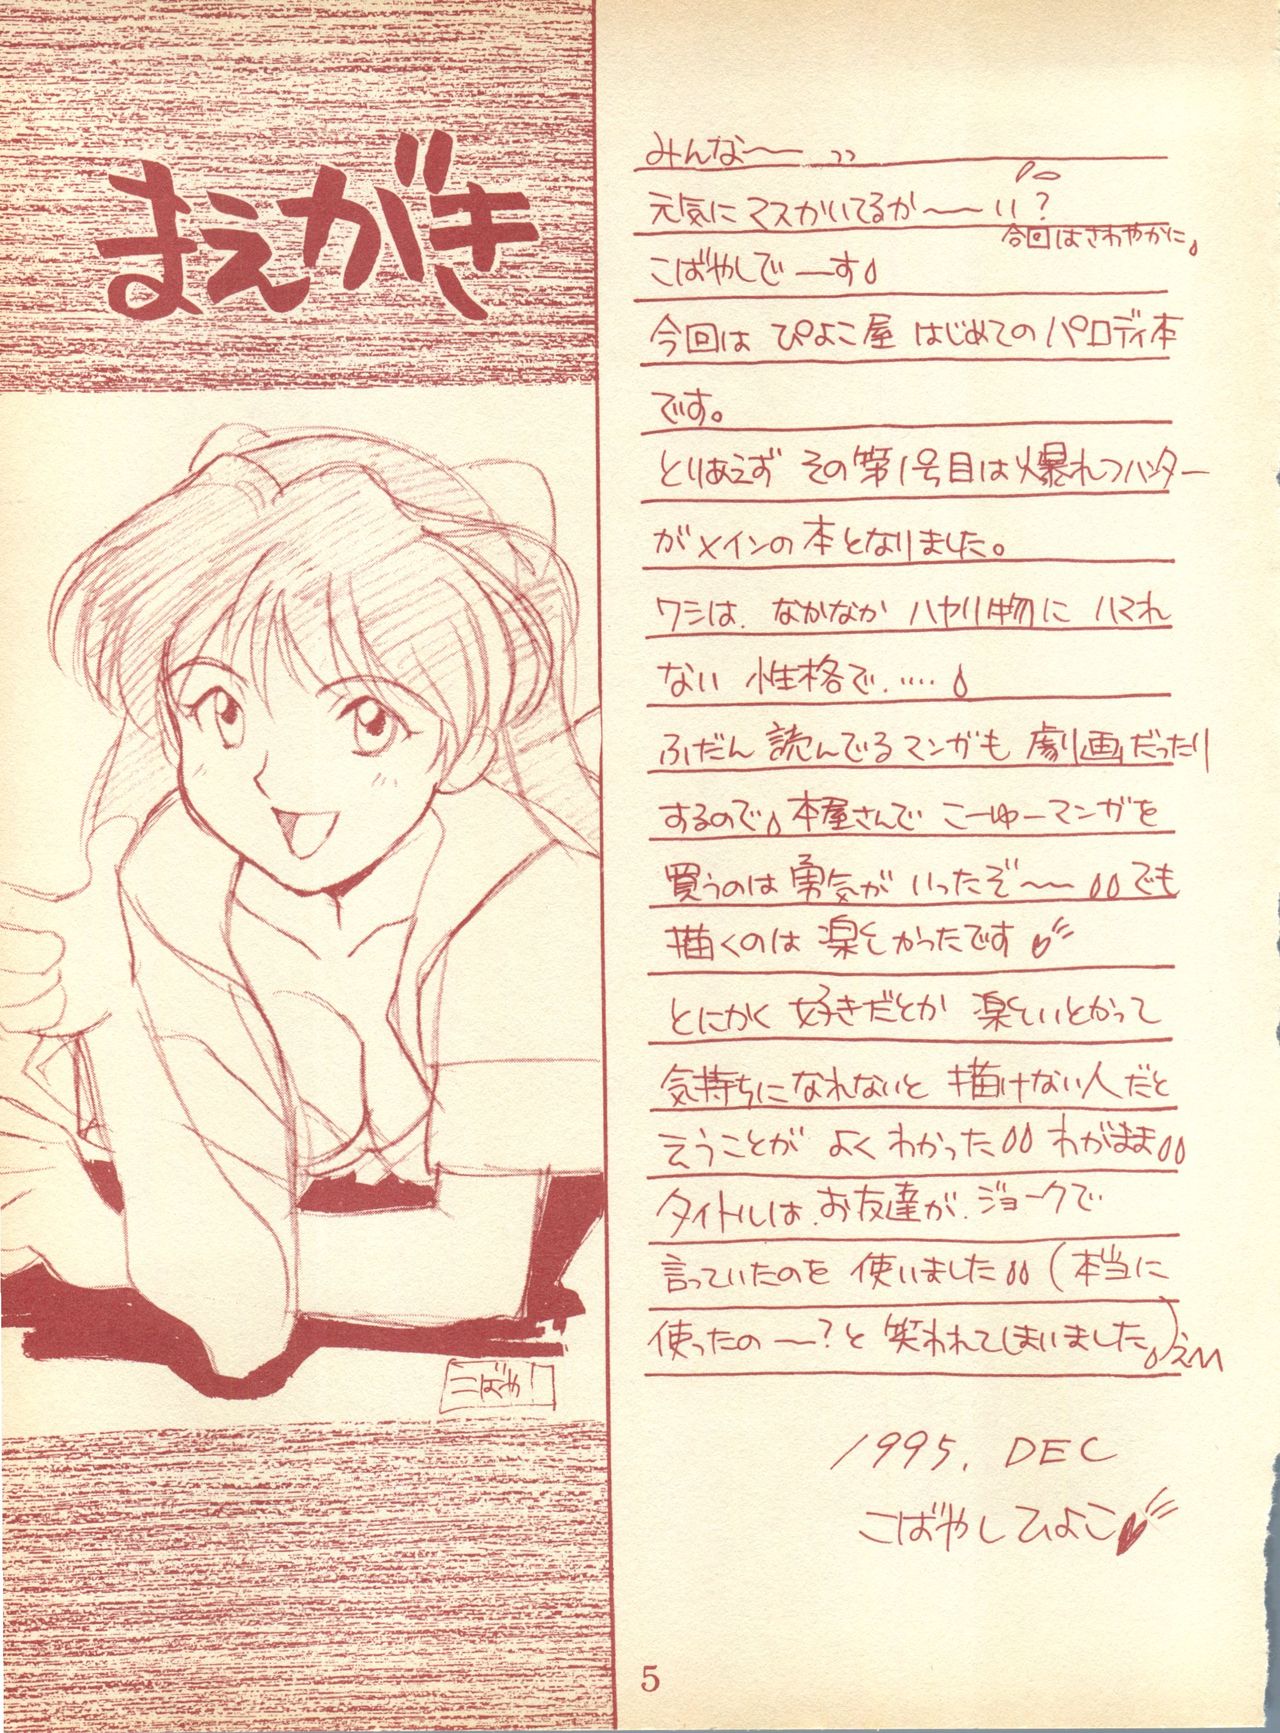 まえがき
みんな〜〜 っっ
元気にマスかいてるか〜〜い？
今回はさわやかに。
こばやしでーす
今回は ぴよこ屋 はじめてのパロディ本
です。
とりあえず その第1号目は爆れつハンター
がメインの本となりました。
ワシは、なかなか ハヤリ物に ハマれ
ない 性格で‥‥‥
ふだん 読んでるマンガも 劇画だったり
するので、本屋さんで こーゆーマンガを
買うのは 勇気が いったぞ〜〜 でも
描くのは 楽しかったです♡
とにかく 好きだとか 楽しいとかって
気持ちになれないと 描けない人だと
ゆうことが よく わかった わがまま
タイトルは、お友達が、ジョークで
言っていたのを 使いました（本当に
使ったの〜？と 笑われてしまいました。）えへ
こばや！
1995. DEC
こばやしひよこ♡
5